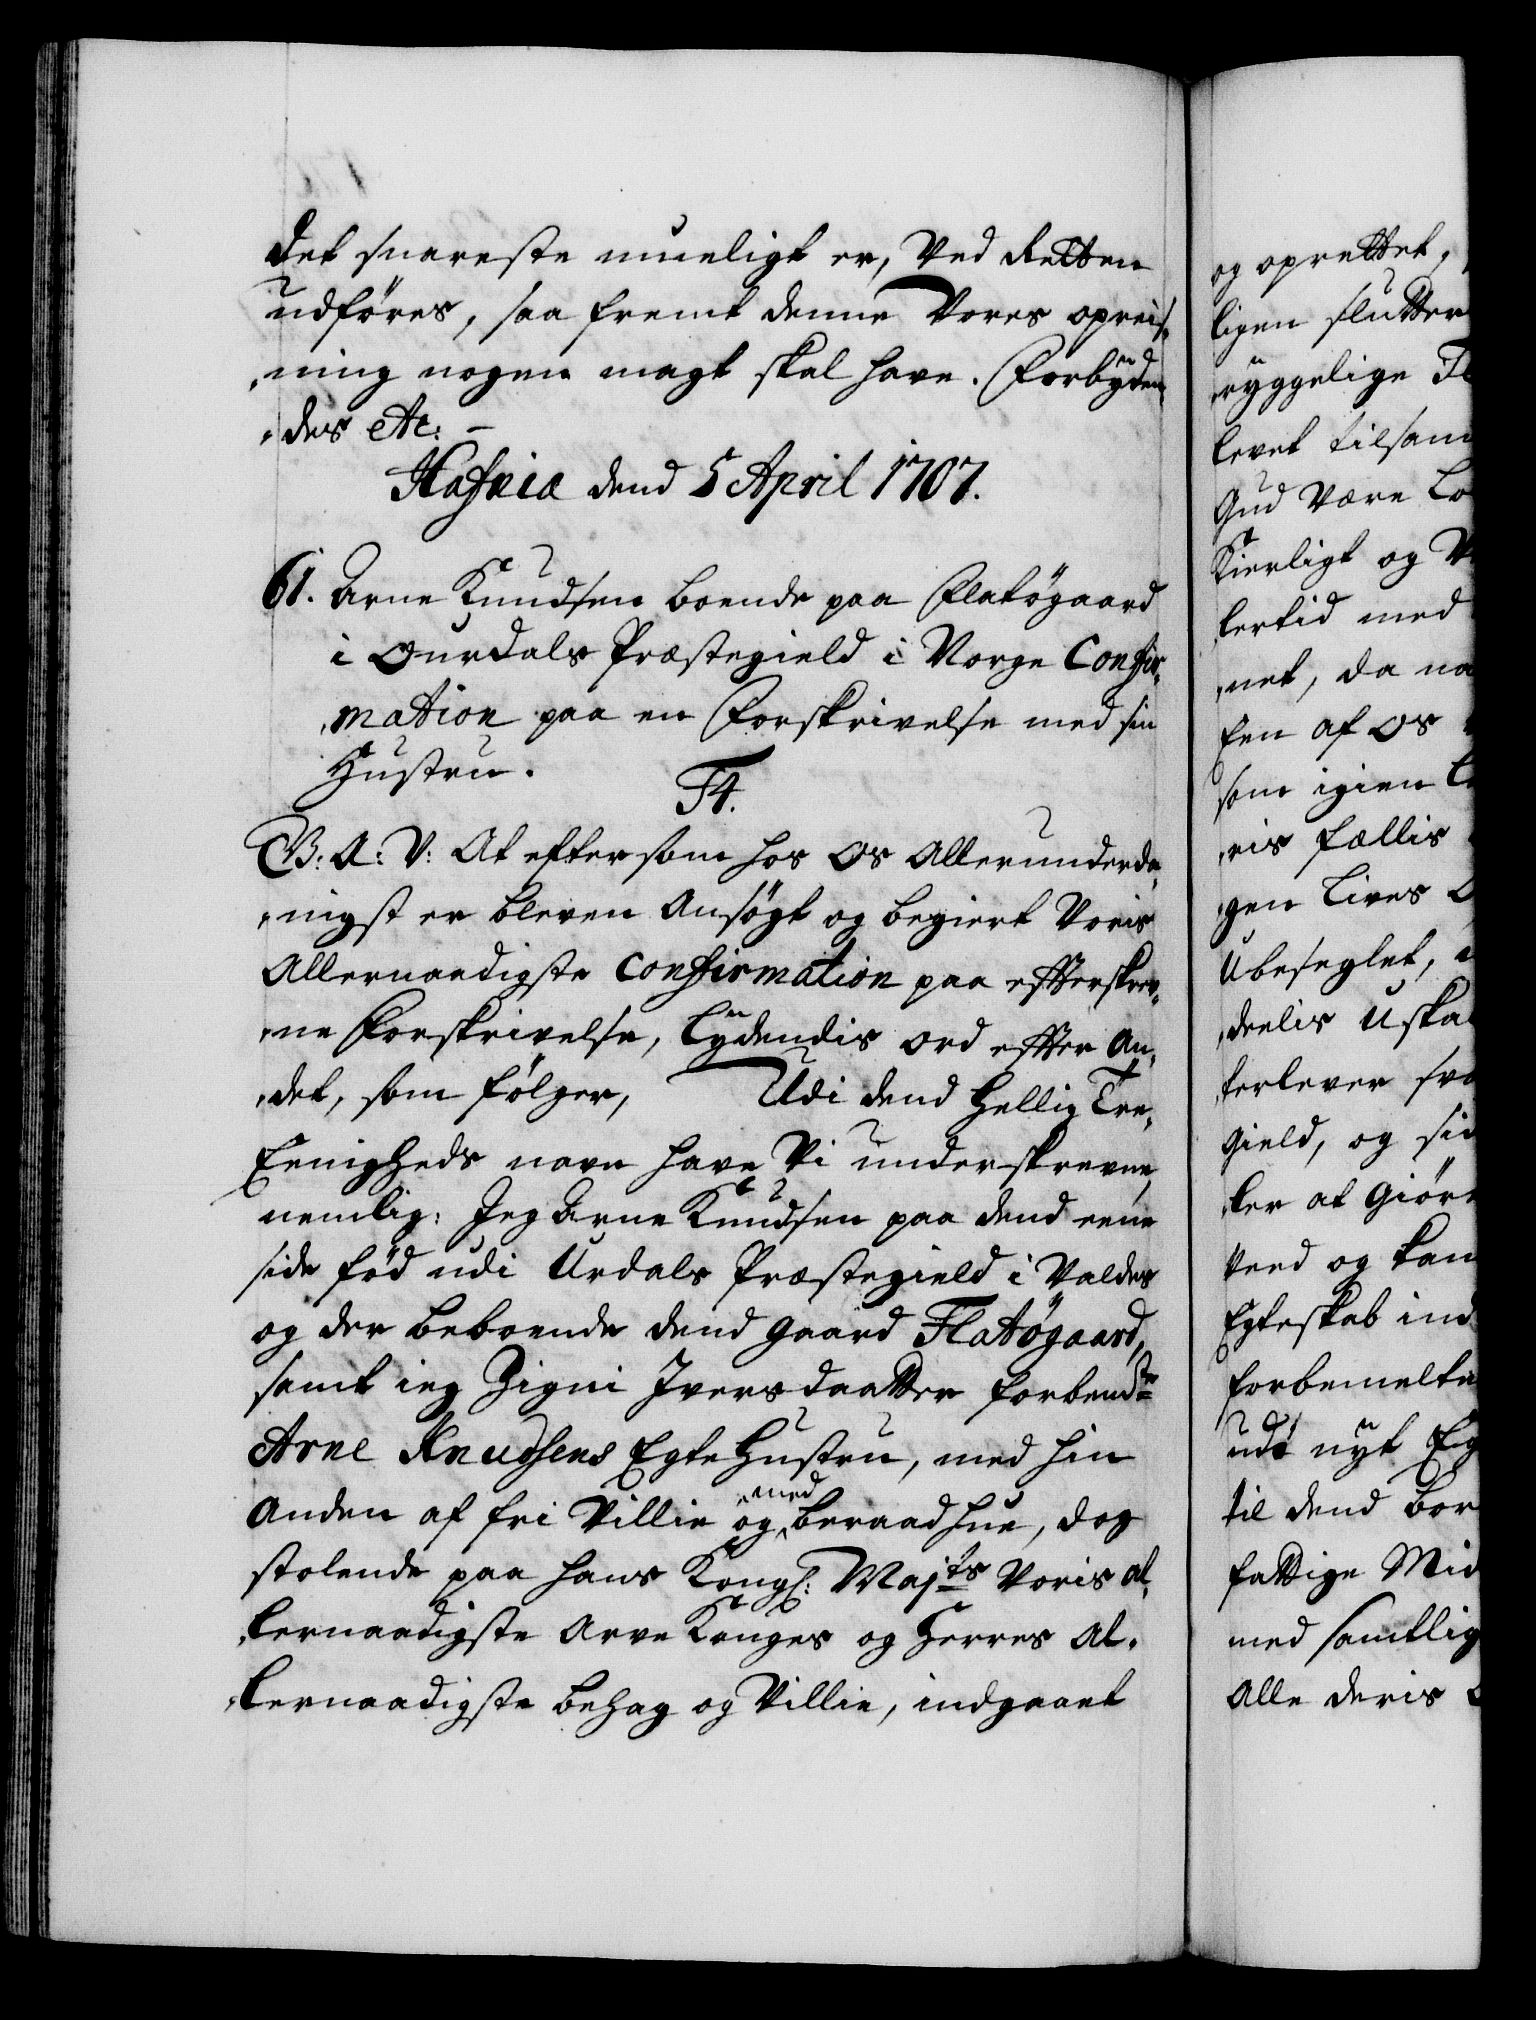 det snareste mueligt er, Ved Retten
udføres, saa fremt denne Vores opreis¸
¸ning nogen magt skal have. Forbÿden¸
¸des etc: –
Hafniæ dend 5 April 1707.
61. Arne Knudsen boende paa Flatøgaard
i Ourdals Præstegield i Norge Confir¸
¸mation paa en Forskrivelse med sin
Hustru.
F4.
G: A: V: At eftersom hos Os Allerunderda¸
¸nigst er bleven Ansøgt og begiert Voris
Allernaadigste Confirmation paa efterskrev¸
¸ne Forskrivelse, Lÿdendis ord effter An¸
¸det, som følger, Udi dend Hellig Tre¸
Eenigheds navn have Vi underskrevne,
nemlig: Jeg Arne Knudsen paa dend eene
side fød udi Urdals Præstegield i Valders
og der beboende dend gaard Flatøgaard,
samt ieg Zigni Iversdaatter forbemdte
Arne Knudsens Egte Hustru, med hin
Anden af fri Villie og med beraad hue, dog
stolende paa hans Kongl: Majts Voris al¸
¸lernaadigste Arve Konges og Herres Al¸
¸lernaadigste behag og Villie, indgaaet
og oprettet,
ligen slutter
¸rÿggelige
levet tilsam
Gud være Lo
Kierligt og
¸lertid med
¸net, da na
Een af Os
som igien
¸ris fællis
¸gen Lives
Ubeseglet,
¸deelis Uska
¸terlever
gield, og
¸ler at Giøre
Veed og kan
Egteskab ind
forbemelte
udi nÿt Eg
til dend bor
fattige Mid
med samtlig
Alle deris